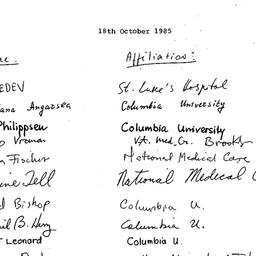 18th October 1985
Affiliation:
EDEV St. Luke's Hospital
Angarsea Columbia University
Philippsen Columbia University
Vroman Vet. Med. Cn. Brooklyn
Fischer National Medical Care
Tell National Medical C
Bishop Columbia U.
B. Columbia U.
Leonard Columbia U.